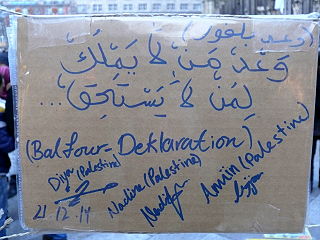 (وعد بلفور)
وَعْدَ مَنْ لَا يَمْلِكْ
لِمَنْ لَا يَسْتَحِقْ...
(Balfour-Deklaration)
Diya (Palestine)
Nadine (Palestine)
Armin (Palestine)
21.12.14